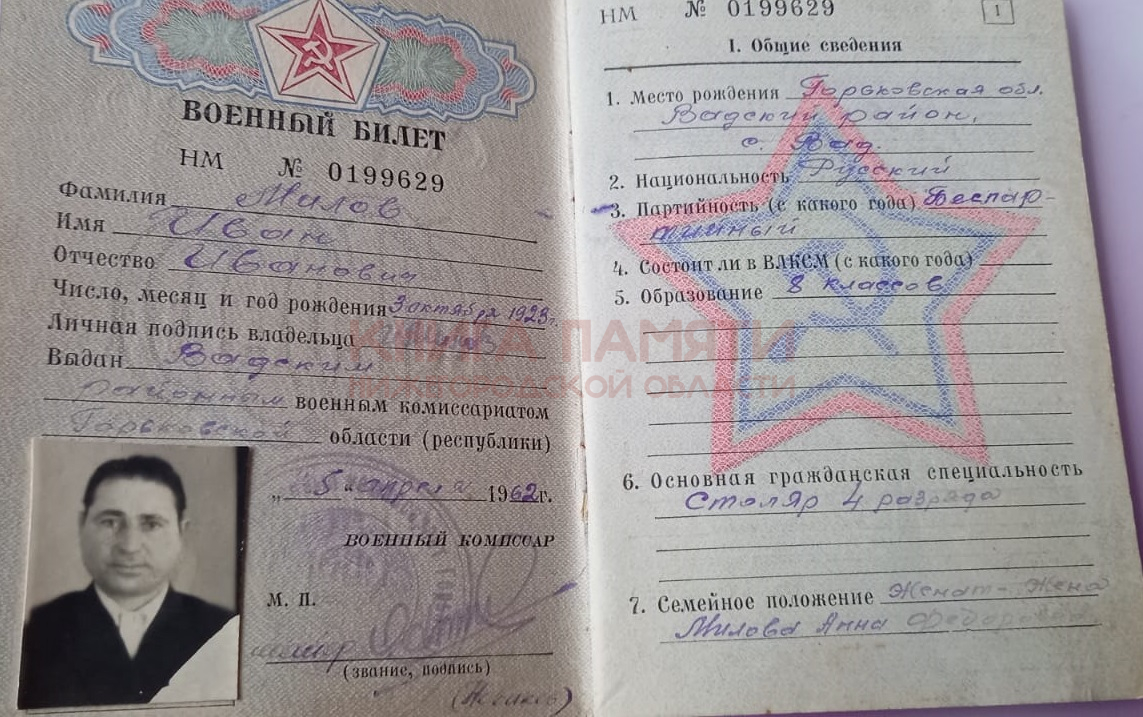 ВОЕННЫЙ БИЛЕТ
НМ № 0199629
Фамилия Милов
Имя Иван
Отчество Иванович
Число, месяц и год рождения 3 октября 1923 г.
Личная подпись владельца
Выдан Вадским
районным военным комиссариатом
Горьковской области (республики)
„ 5 " апреля 1962 г.
ВОЕННЫЙ КОМИССАР
М. П.
(звание, подпись)
НМ № 0199629
1
I. Общие сведения
1. Место рождения Горьковская обл.
Вадский район,
с. Вад.
2. Национальность Русский
3. Партийность (с какого года) Беспар-
тийный
4. Состоит ли в ВЛКСМ (с какого года)
5. Образование 8 классов
6. Основная гражданская специальность
Столяр 4 разряда
7. Семейное положение Женат - жена
Милова Анна Федоровна
КНИГА ПАМЯТИ
НИЖЕГОРОДСКОЙ ОБЛАСТИ